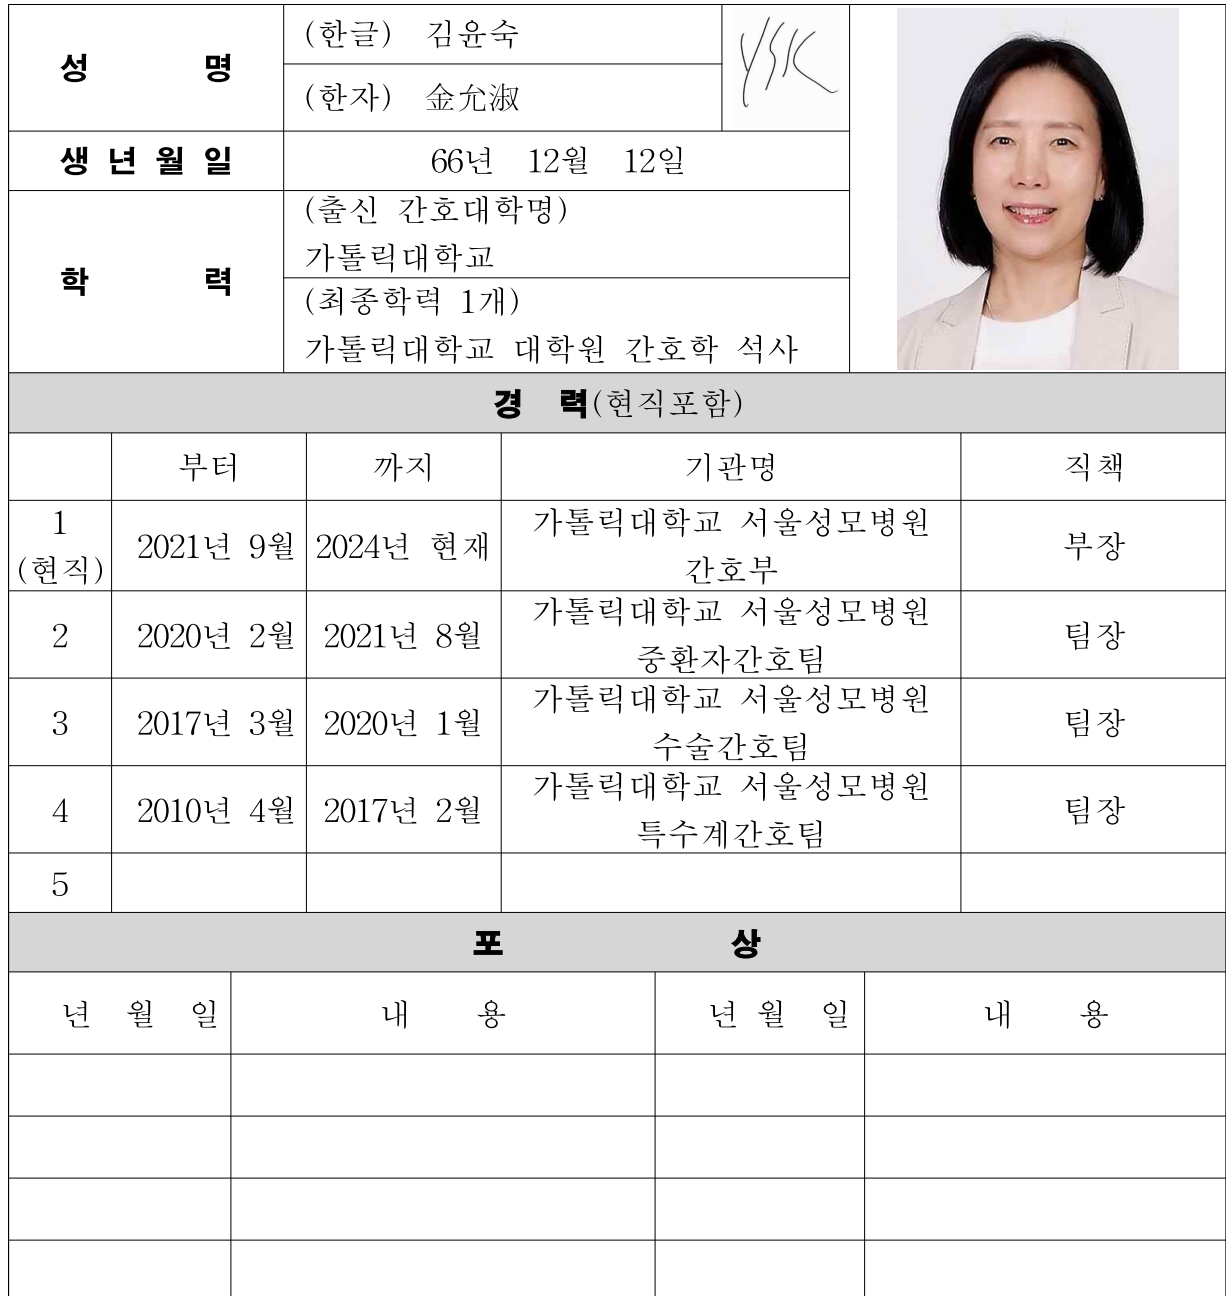 성 명 (한글) 김윤숙 YSK
(한자) 金允淑
생 년 월 일 66년 12월 12일
학 력 (출신 간호대학명)
가톨릭대학교
(최종학력 1개)
가톨릭대학교 대학원 간호학 석사
경 력(현직포함)
부터 까지 기관명 직책
1
(현직) 2021년 9월 2024년 현재 가톨릭대학교 서울성모병원
간호부 부장
2 2020년 2월 2021년 8월 가톨릭대학교 서울성모병원
중환자간호팀 팀장
3 2017년 3월 2020년 1월 가톨릭대학교 서울성모병원
수술간호팀 팀장
4 2010년 4월 2017년 2월 가톨릭대학교 서울성모병원
특수계간호팀 팀장
5
포 상
년 월 일 내 용 년 월 일 내 용